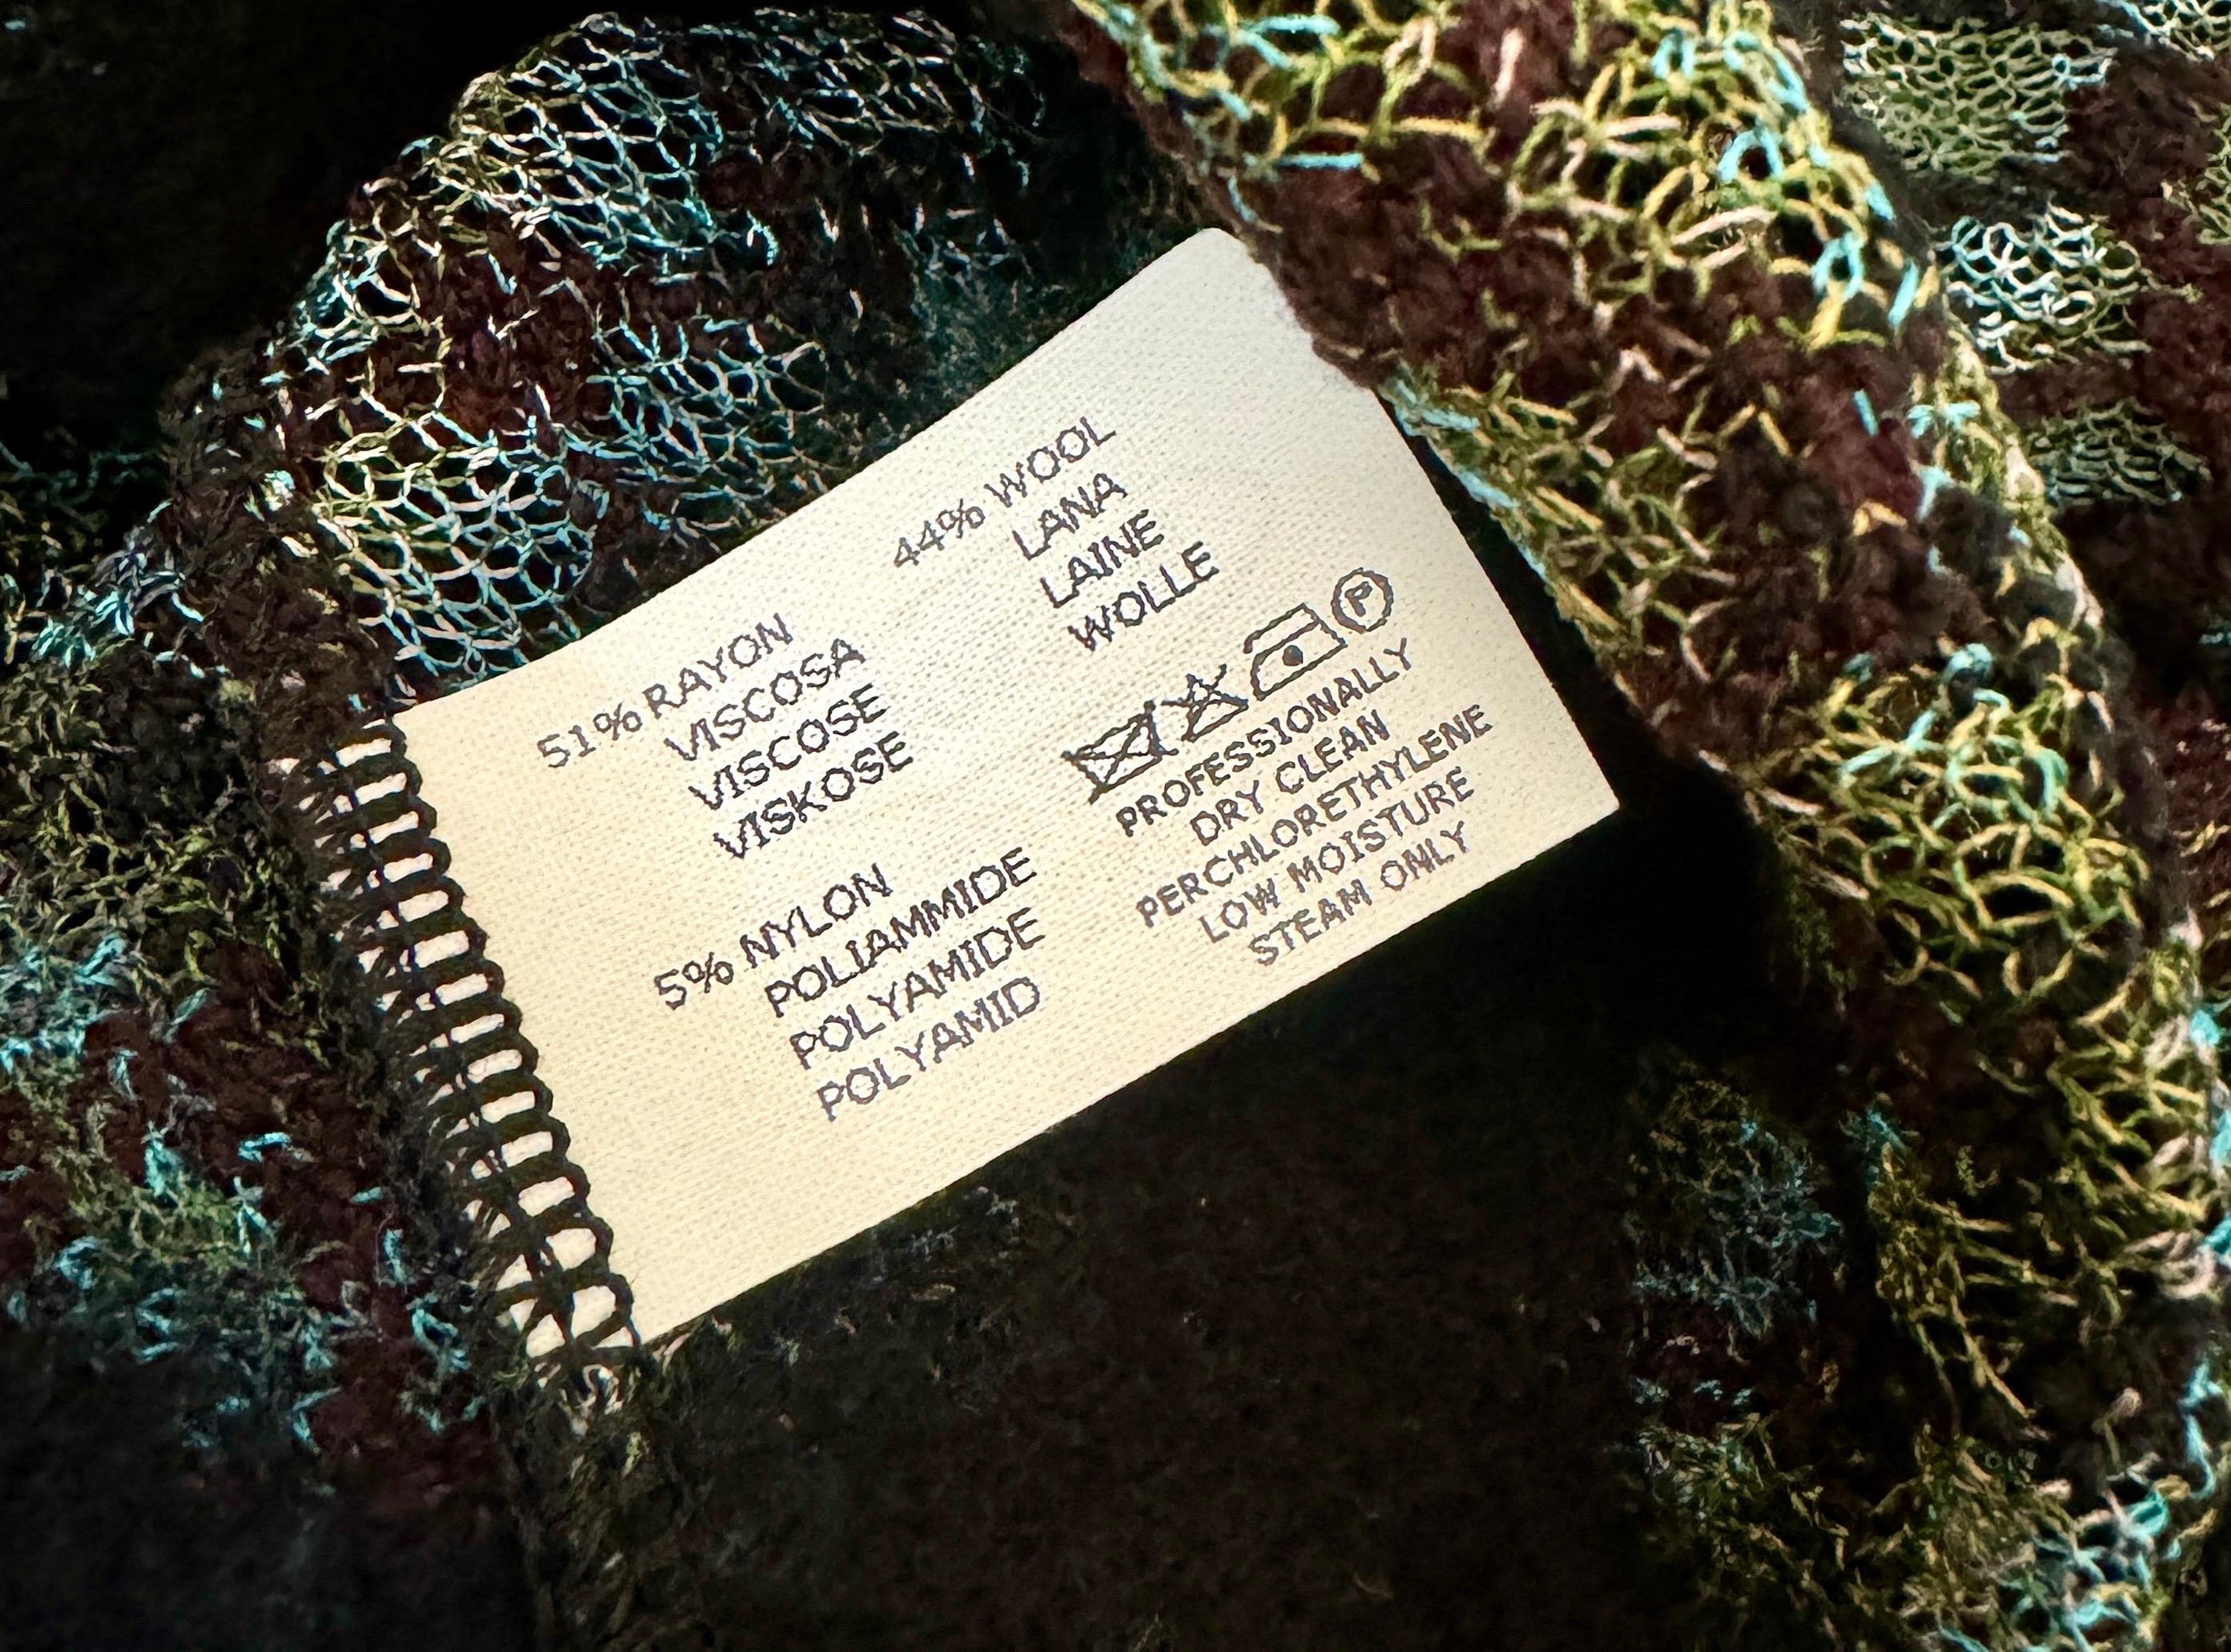 51% RAYON
VISCOSA
VISCOSE
VISKOSE
44% WOOL
LANA
LAINE
WOLLE
5% NYLON
POLIAMMIDE
POLYAMIDE
POLYAMID
P
PROFESSIONALLY
DRY CLEAN
PERCHLORETHYLENE
LOW MOISTURE
STEAM ONLY